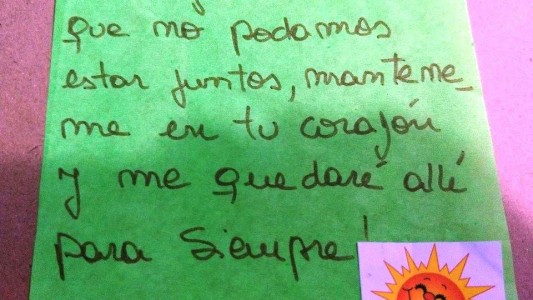 que no podamos
estar juntos, mantene_
me en tu corazón
y me quedaré allí
para siempre!